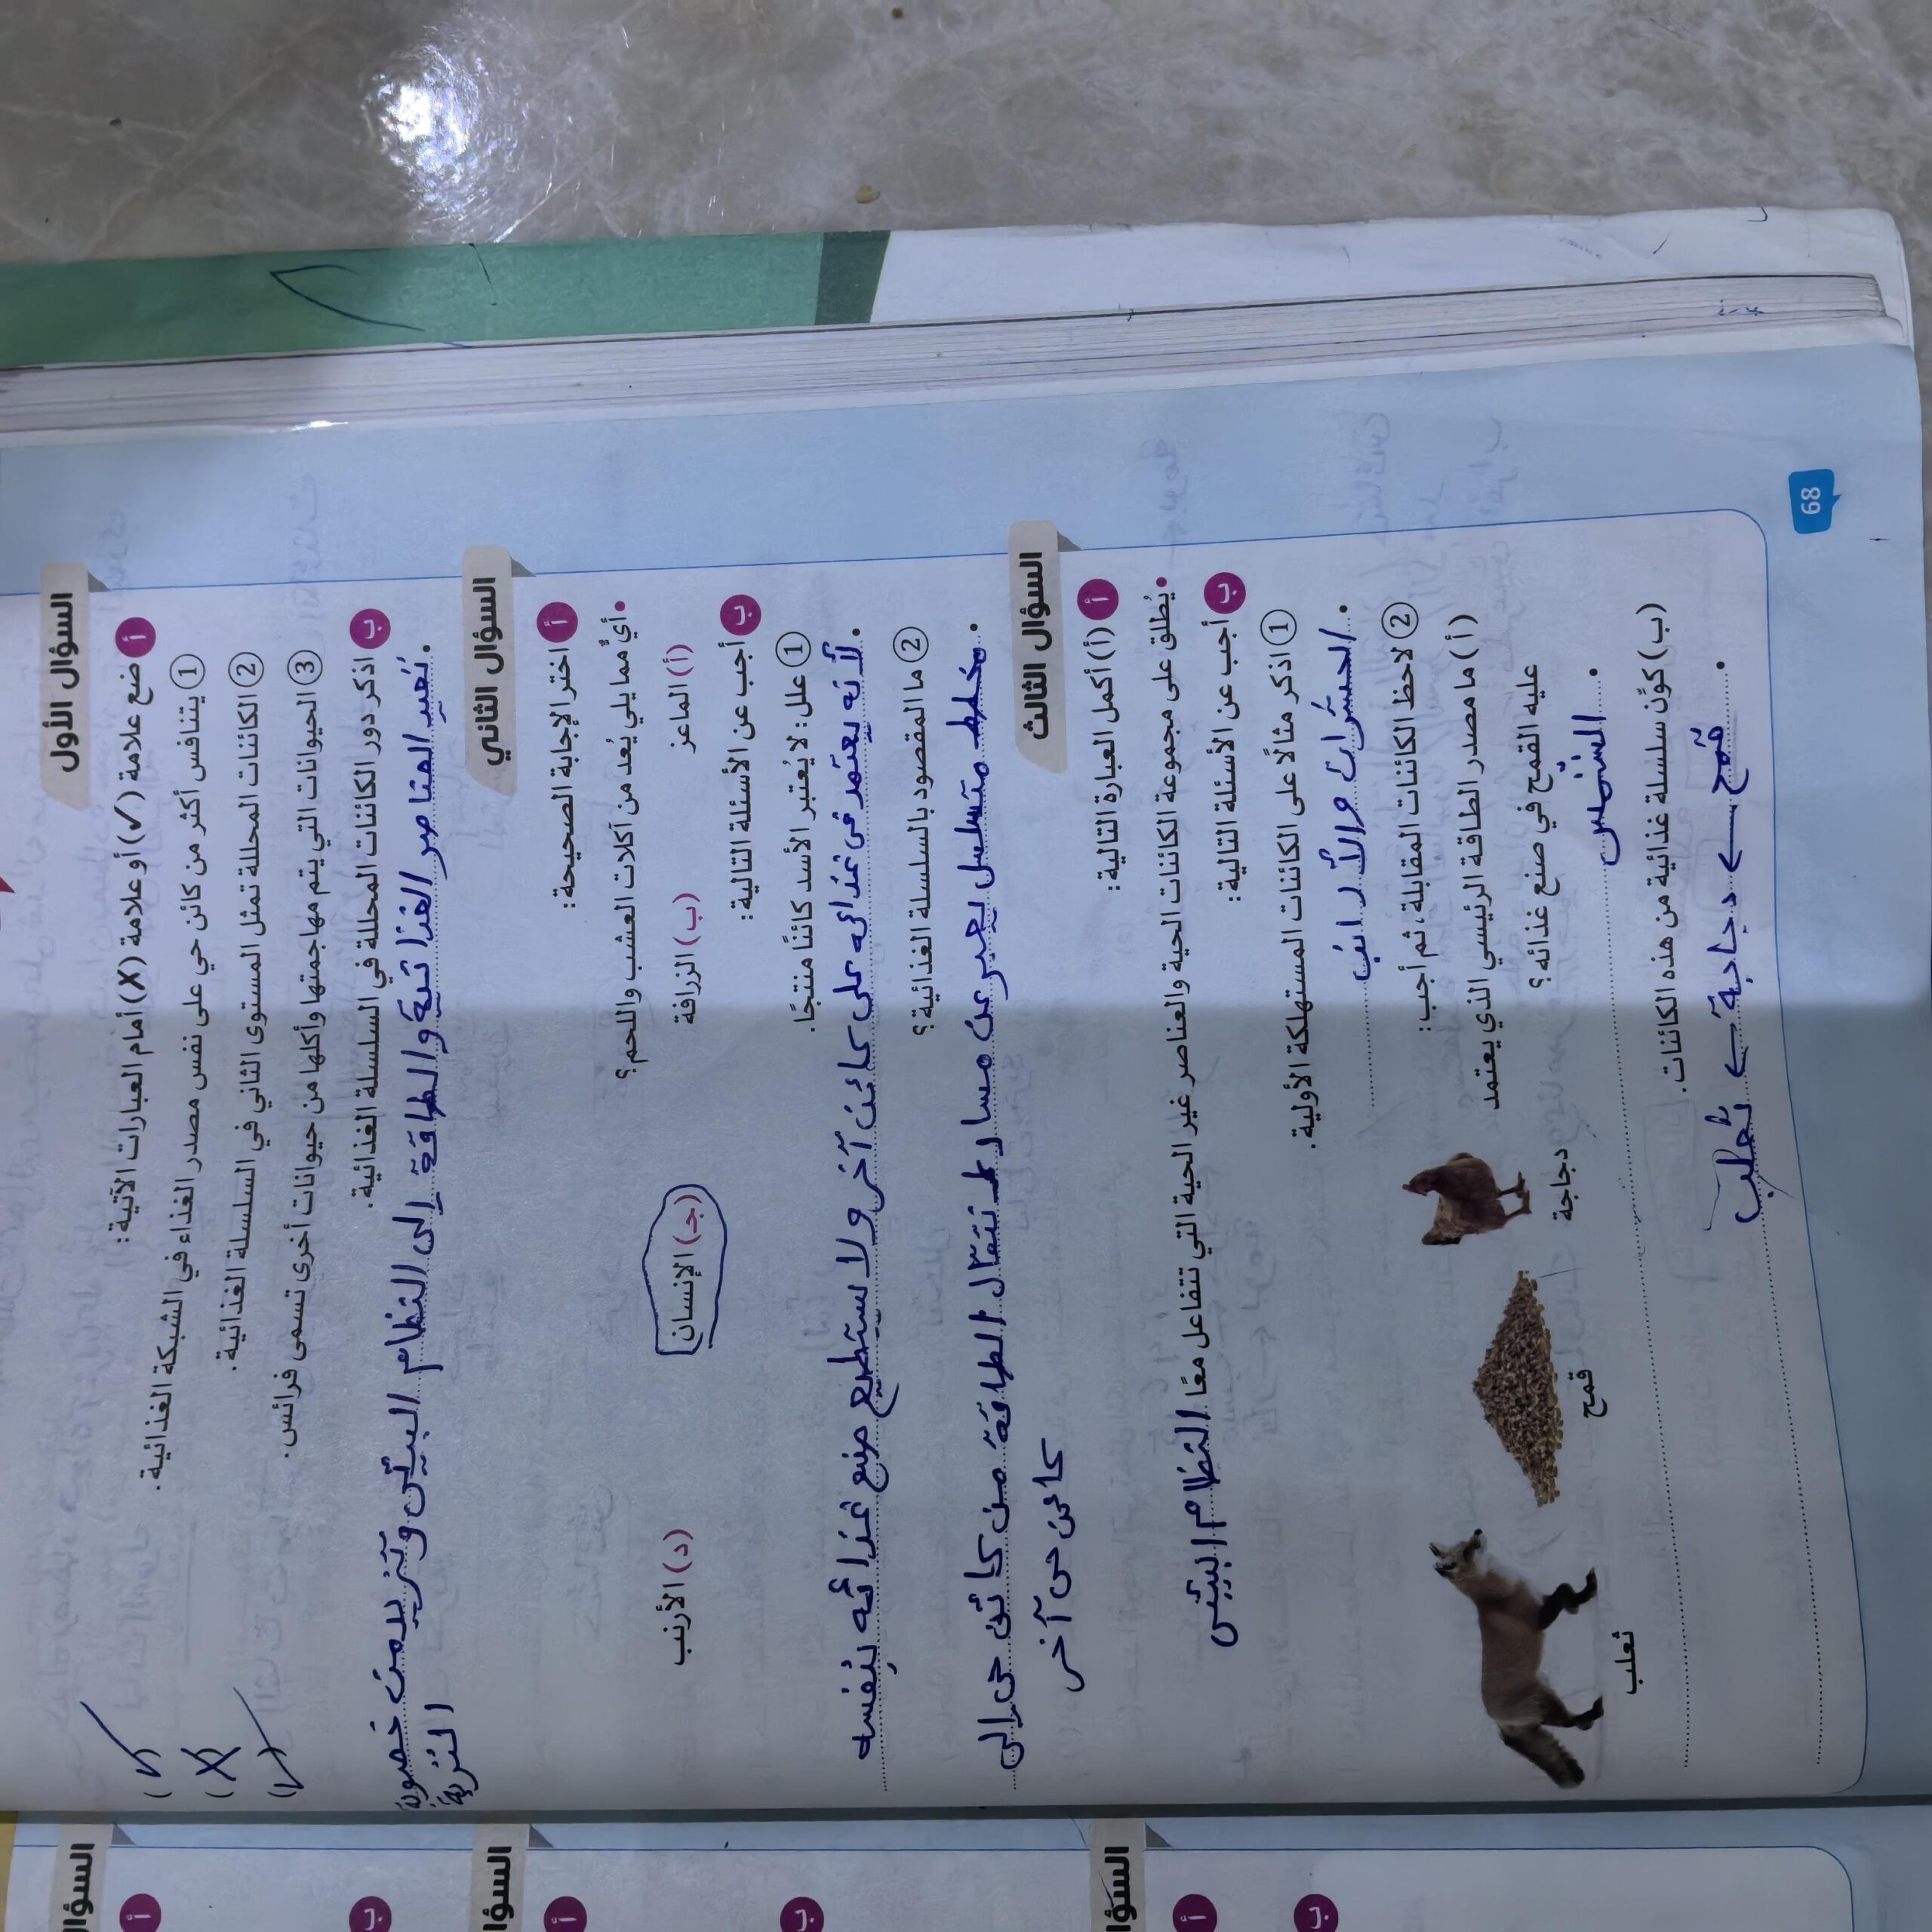 السؤال الأول
أ ضع علامة (✓) أو علامة (X) أمام العبارات الآتية:
1 يتنافس أكثر من كائن حي على نفس مصدر الغذاء في الشبكة الغذائية. (✓)
2 الكائنات المحللة تمثل المستوى الثاني في السلسلة الغذائية. (X)
3 الحيوانات التي يتم مهاجمتها وأكلها من حيوانات أخرى تسمى فرائس. (✓)
ب اذكر دور الكائنات المحللة في السلسلة الغذائية.
• تعيد العناصر الغذائية والطاقة إلى النظام البيئي وتزيد من خصوبة
التربة
السؤال الثاني
أ اختر الإجابة الصحيحة:
• أيٌّ مما يلي يُعد من آكلات العشب واللحم؟
(أ) الماعز (ب) الزرافة (جـ) الإنسان (د) الأرنب
ب أجب عن الأسئلة التالية:
1 علل: لا يُعتبر الأسد كائنًا منتجًا.
• لأنه يعتمد في غذائه على كائن آخر ولا يستطيع صنع غذائه بنفسه
2 ما المقصود بالسلسلة الغذائية؟
• مخطط متسلسل يعبر عن مسار انتقال الطاقة من كائن حي إلى
كائن حي آخر
السؤال الثالث
أ (أ) أكمل العبارة التالية:
• يُطلق على مجموعة الكائنات الحية والعناصر غير الحية التي تتفاعل معًا النظام البيئي
ب أجب عن الأسئلة التالية:
1 اذكر مثالًا على الكائنات المستهلكة الأولية.
• الحشرات والأرانب
2 لاحظ الكائنات المقابلة، ثم أجب:
(أ) ما مصدر الطاقة الرئيسي الذي يعتمد
عليه القمح في صنع غذائه؟
• الشمس
دجاجة
قمح
ثعلب
(ب) كوِّن سلسلة غذائية من هذه الكائنات.
• قمح ← دجاجة ← ثعلب
68
السؤال
أ
ب
السؤا
أ
ب
السؤا
أ
ب